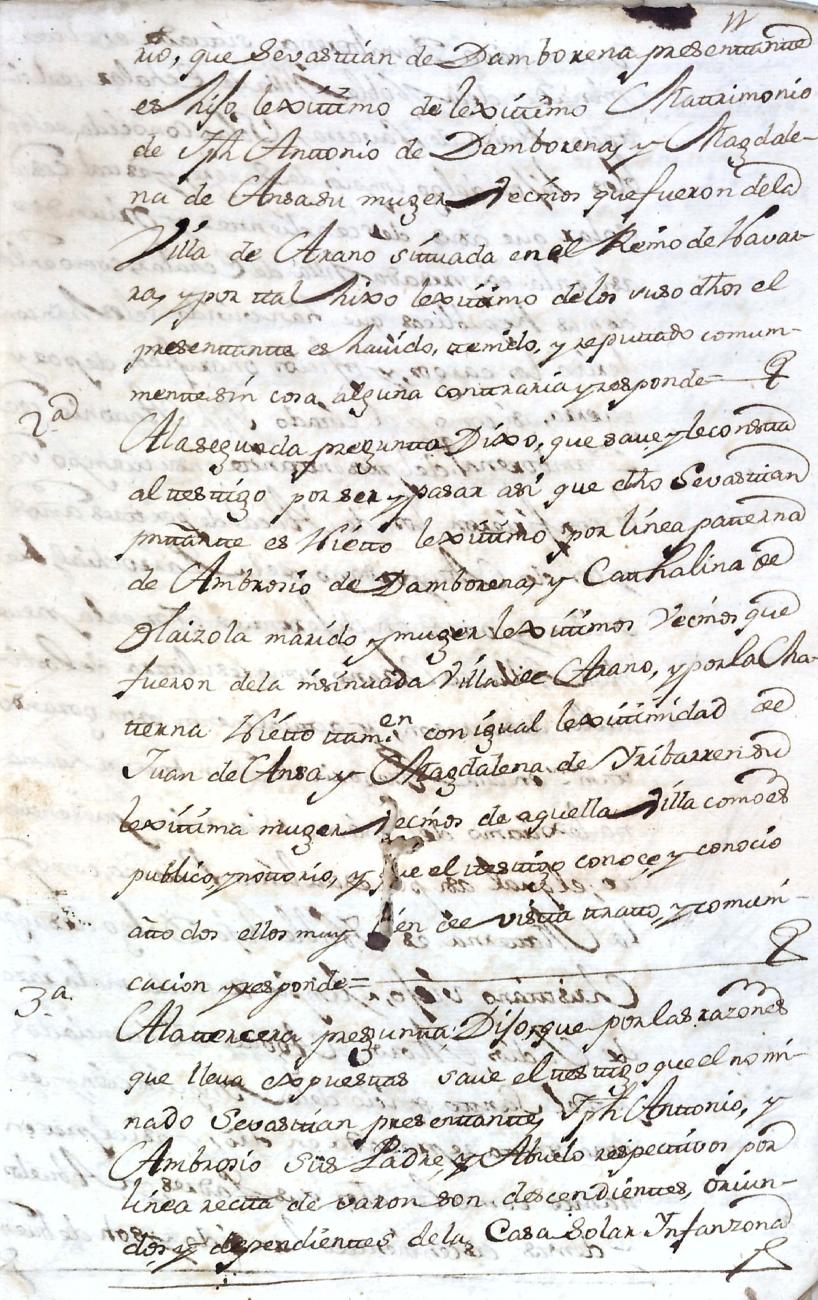 rio, que Sevasttian de Damborena presenttantte
es hijo lexittimo de lexittimo Mattrimonio
de Jph Anttonio de Damborena, y Magdale-
na de Ansa su muger Vecinos que fueron dela
Villa de Arano sittuada en el Reino de Navar-
ra, y por ttal hixo lexittimo de los suso dhos el
presenttante es havido, ttenido, y reputtado comun-
mente sin cosa alguna conttraria y responde=
2.ª
Ala segunda preguntta Dixo, que save y le constta
al testtigo por ser y pasar asi que dho Sevasttian
presttantte es Nietto lexittimo por linea patterna
de Ambrosio de Damborena, y Catthalina de
Olaizola marido y muger lexittimos Vecinos que
fueron dela insinuada Villa de Arano, y por la Ma-
tterna Nietto ttam.en con igual lexittimidad de
Juan de Ansa y Magdalena de Yribarren su
lexittima muger Vecinos de aquella Villa como es
publico, y nottorio, y que el testtigo conoce, y conocio
a ttodos ellos muy bien de vistta tratto, y comuni-
cacion y responde=
3.ª
Ala tercera pregunta: Dijo, que por las razones
que lleva expuesttas save el testtigo que el nomi-
nado Sevasttian presenttantte, Jph Anttonio, y
Ambrosio sus Padre, y Abuelo respecttivos por
linea rectta de varon son descendienttes, oriun-
dos, y dependienttes de la Casa Solar Infanzona